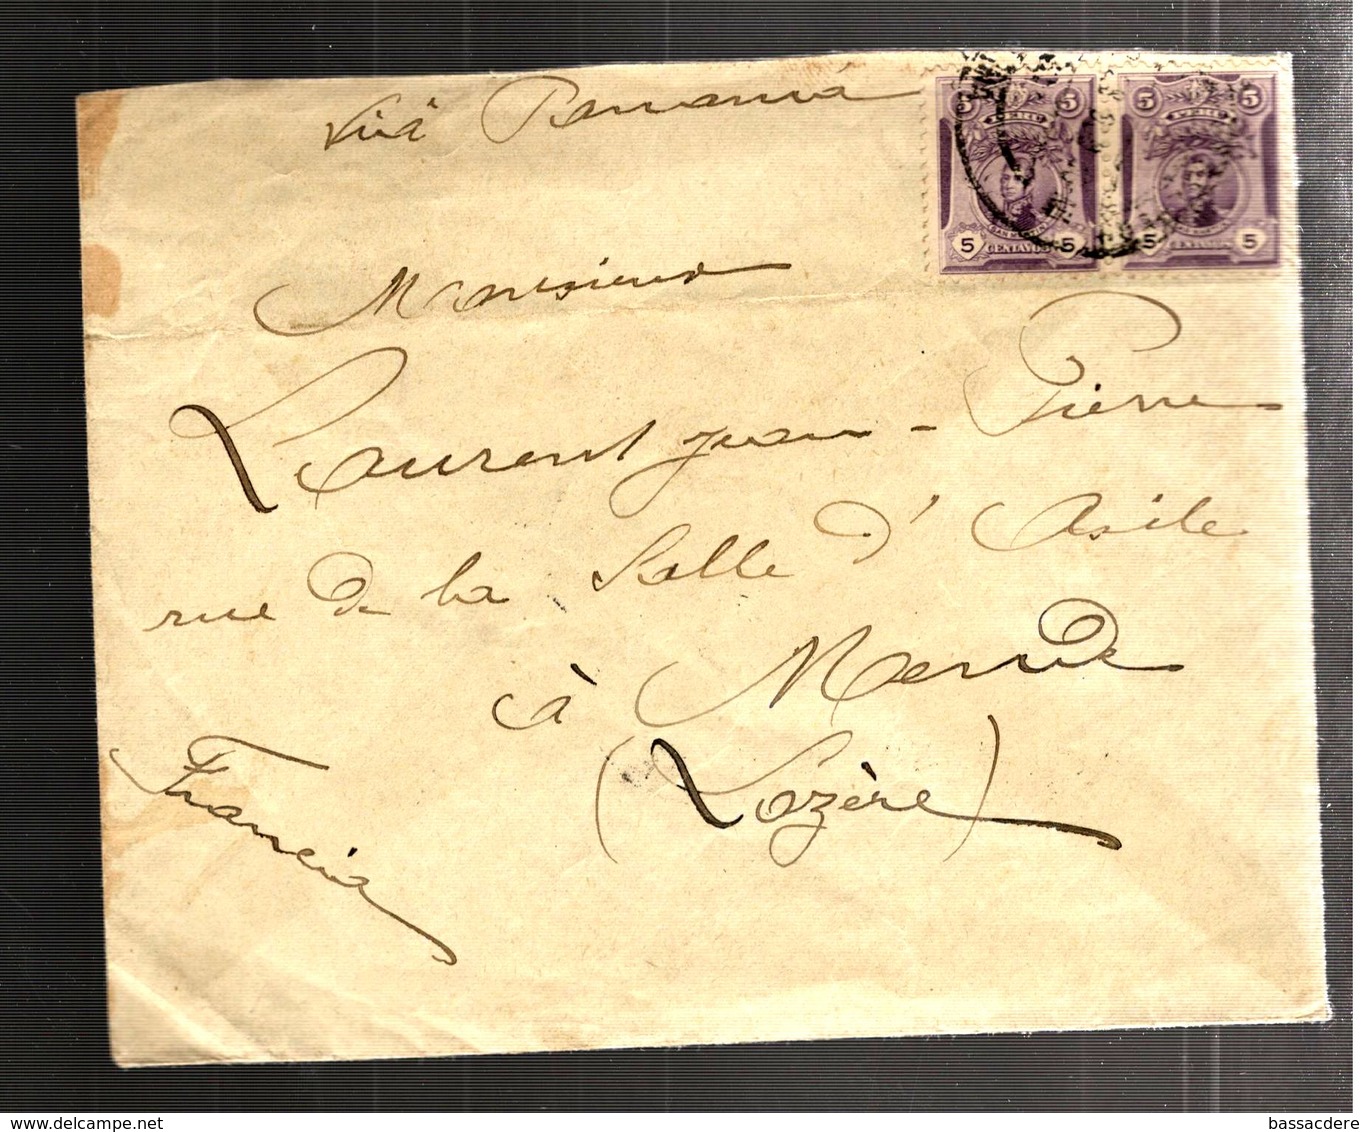 Viâ Panamá
5 5 5 5
PERU PERU
SAN MARTIN
5 CENTAVOS 5 5 CENTAVOS 5
Monsieur
Laurent Jean-Pierre
rue de la Salle d'Asile
à Mende
(Lozère)
Francia
delcampe.net
bassacdere